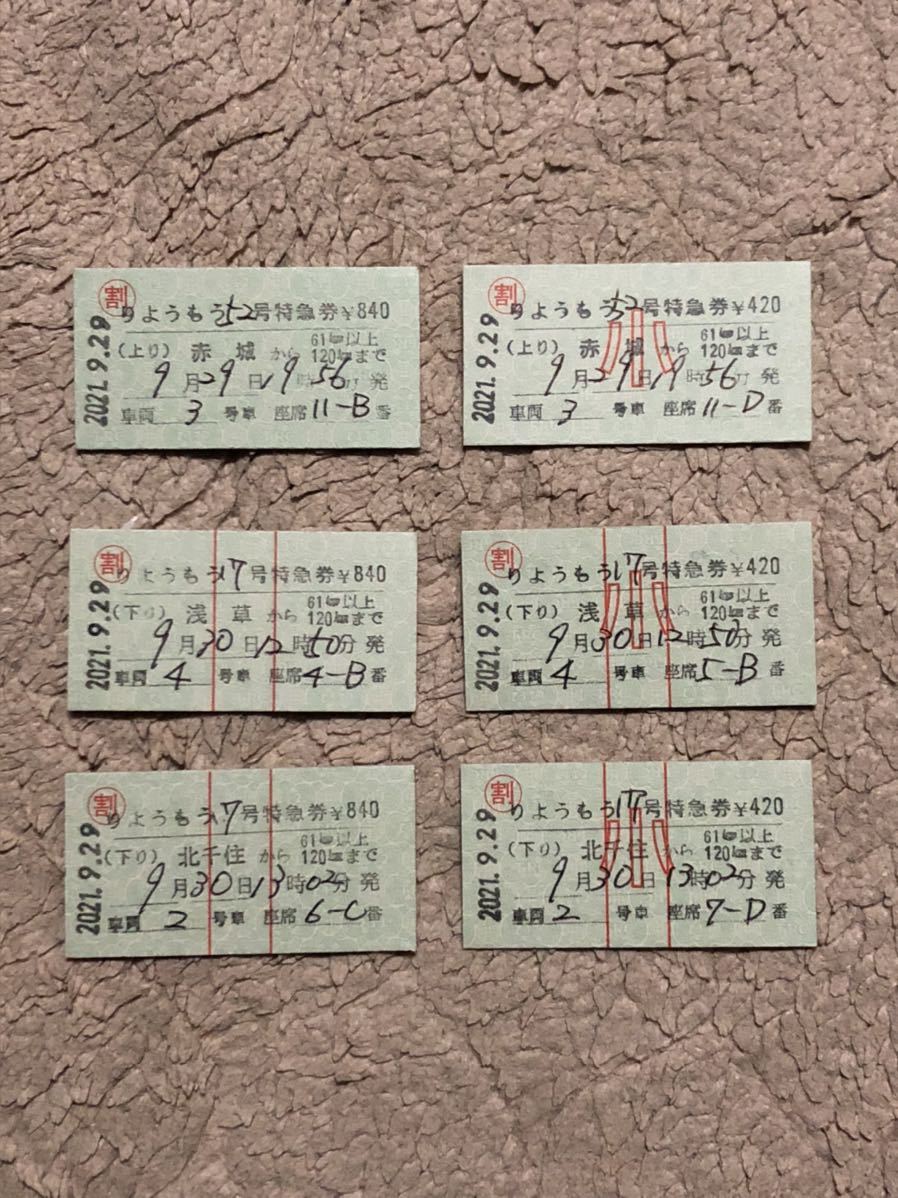 割
2021.9.29
りようもう52号特急券¥840
(上り) 赤城から 61㎞以上120㎞まで
9月29日19時56分発
車両 3 号車 座席11-B番
割
2021.9.29
りようもう52号特急券¥420
小
(上り) 赤城から 61㎞以上120㎞まで
9月29日19時56分発
車両 3 号車 座席11-D番
割
2021.9.29
りようもう17号特急券¥840
(下り) 浅草から 61㎞以上120㎞まで
9月30日12時50分発
車両 4 号車 座席4-B番
割
2021.9.29
りようもう17号特急券¥420
小
(下り) 浅草から 61㎞以上120㎞まで
9月30日12時50分発
車両 4 号車 座席5-B番
割
2021.9.29
りようもう17号特急券¥840
(下り) 北千住から 61㎞以上120㎞まで
9月30日13時02分発
車両 2 号車 座席6-C番
割
2021.9.29
りようもう17号特急券¥420
小
(下り) 北千住から 61㎞以上120㎞まで
9月30日13時02分発
車両 2 号車 座席7-D番